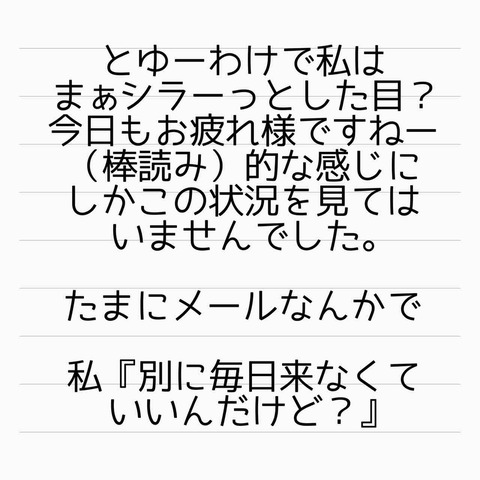 とゆーわけで私は
まぁシラーっとした目？
今日もお疲れ様ですねー
（棒読み）的な感じに
しかこの状況を見ては
いませんでした。
たまにメールなんかで
私『別に毎日来なくて
いいんだけど？』